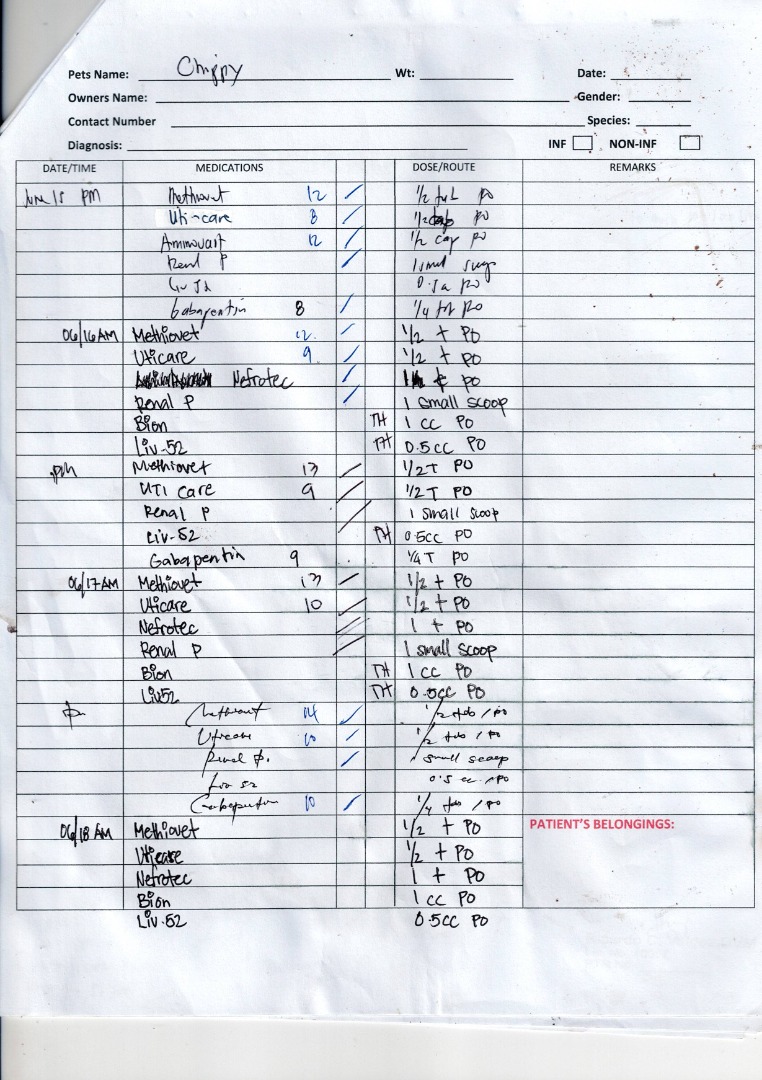 Pets Name: Chippy Wt: Date:
Owners Name: Gender:
Contact Number Species:
Diagnosis: INF NON-INF
DATE/TIME MEDICATIONS DOSE/ROUTE REMARKS
June 15 PM Methiovet 12 1/2 tab PO
Uti-care 8 1/2 PO
Aminovast 12 1/2 cap PO
Renal P 1 small
PO
Gabapentin 8 1/4 tab PO
06/16 AM Methiovet 12 1/2 t PO
Uticare 9 1/2 t PO
Nefrotec t PO
Renal P 1 small scoop
Bion TH 1 cc PO
Liv-52 TH 0.5cc PO
pm Methiovet 13 1/2 T PO
UTI care 9 1/2 T PO
Renal P 1 small scoop
Liv-52 TH 0.5cc PO
Gabapentin 9 1/4 T PO
06/17 AM Methiovet 13 1/2 t PO
Uticare 10 1/2 t PO
Nefrotec 1 t PO
Renal P 1 small scoop
Bion TH 1 cc PO
Liv52 TH 0.5cc PO
Methiovet 14 1/2 tab / po
Uticare 10 1/2 tab / po
Renal p. 1 small scoop
Liv 52 0.5 cc / po
Gabapentin 10 1/4 tab / po
06/18 AM Methiovet 1/2 t PO PATIENT'S BELONGINGS:
Uticare 1/2 t PO
Nefrotec 1 t PO
Bion 1 cc PO
Liv-52 0.5cc PO